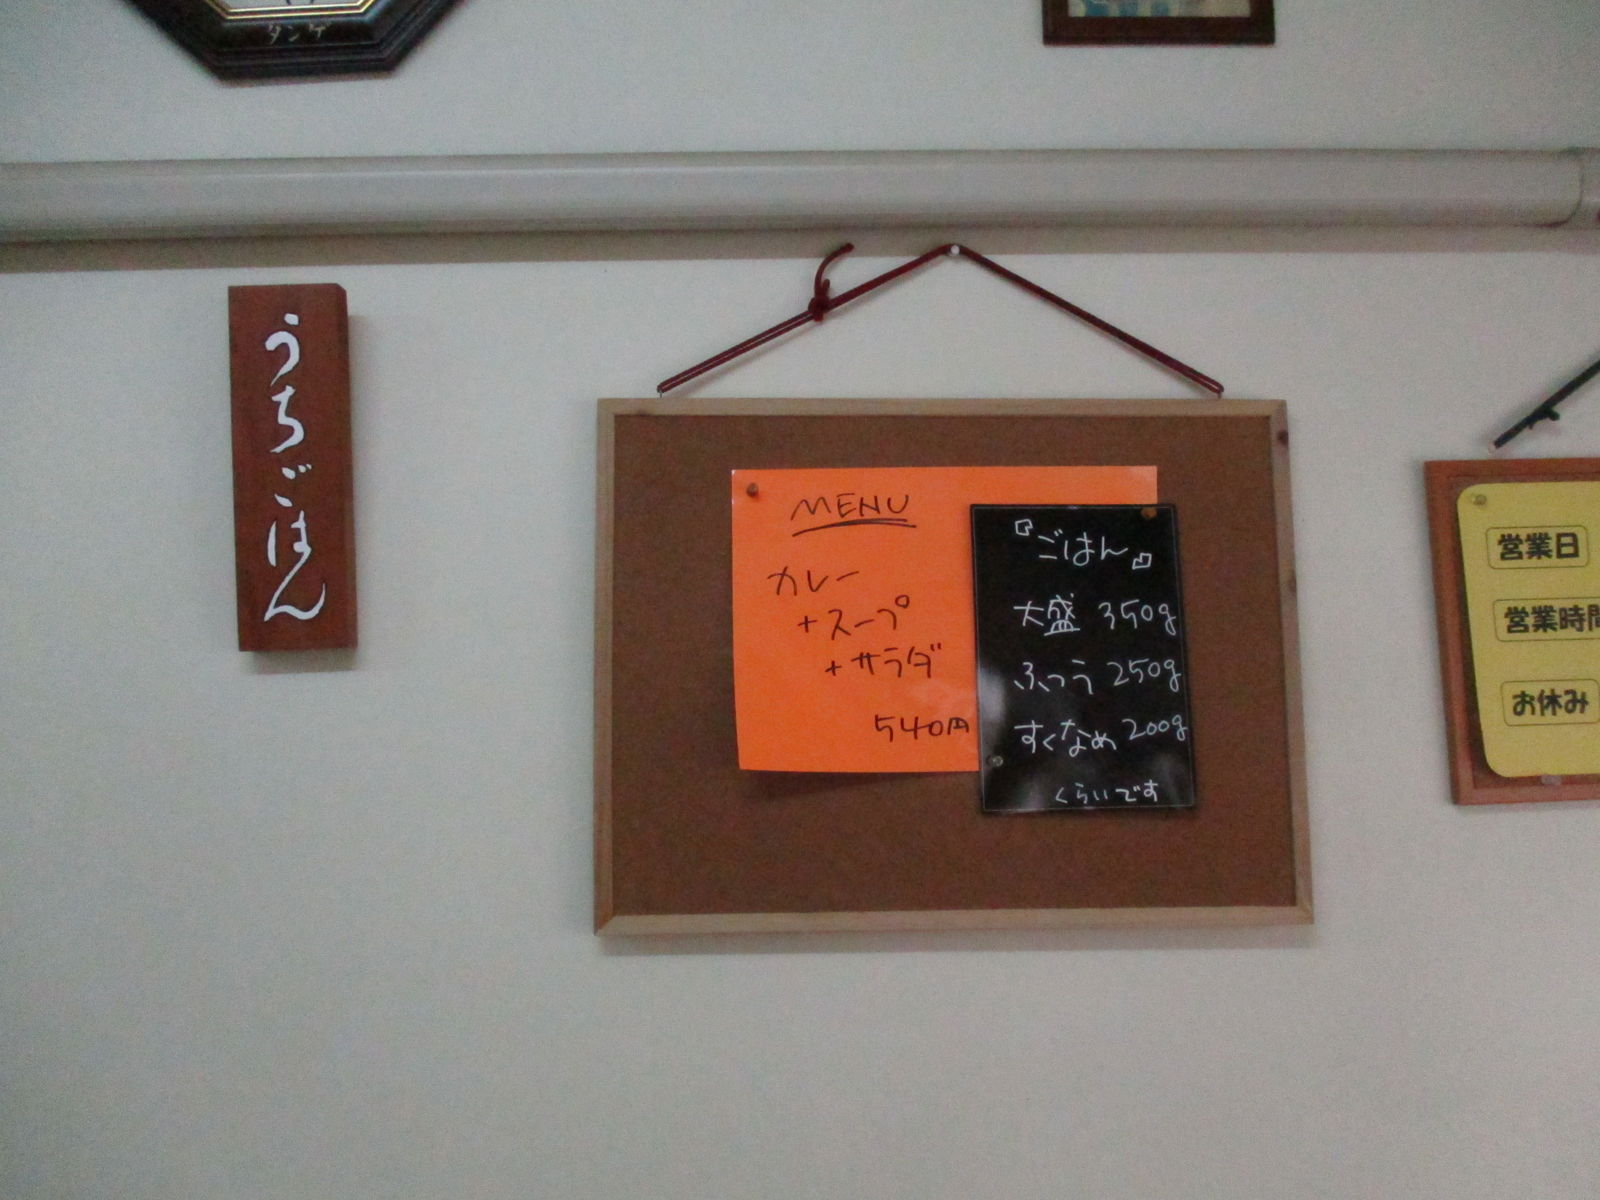 タンゲ
うちごはん
MENU
カレー
+スープ
+サラダ
540円
『ごはん』
大盛 350g
ふつう 250g
すくなめ 200g
くらいです
営業日
営業時間
お休み